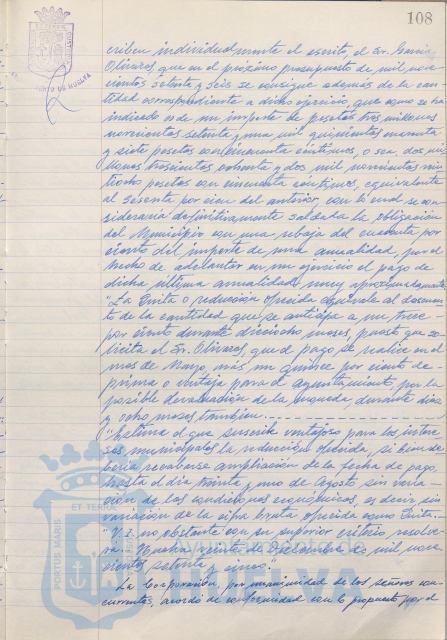 108
criben individualmente el escrito, el Sr. García
Olivares, que en el próximo presupuesto de mil nove-
cientos setenta y seis se consigne además de la can-
tidad correspondiente a dicho ejercicio, que como se ha
indicado es de un importe de pesetas tres millones
novecientos setenta y una mil quinientas cuarenta
y siete pesetas con cincuenta céntimos, o sea dos mi-
llones trescientos ochenta y dos mil novecientas vein-
tiocho pesetas con cincuenta céntimos, equivalente
al sesenta por cien del anterior, con lo cual se con-
sideraría definitivamente saldada la obligación
del Municipio con una rebaja del cuarenta por
ciento del importe de una anualidad, por el
hecho de adelantar en un ejercicio el pago de
dicha última anualidad, muy aproximadamente.
"La Quita o reducción ofrecida equivale al descuen-
to de la cantidad que se anticipe a un trece
por ciento durante dieciocho meses, puesto que so-
licita el Sr. Olivares, que el pago se realice en el
mes de Marzo, más un quince por ciento de
prima o ventaja para el ayuntamiento por la
posible devaluación de la moneda durante diez
y ocho meses también.
"Estima el que suscribe ventajoso para los intere-
ses municipales la reducción ofrecida, si bien de-
bería recabarse ampliación de la fecha de pago,
hasta el día treinta y uno de Agosto, sin varia-
ción de las condiciones económicas, es decir, sin
variación de la cifra bruta ofrecida como Quita.
"V.I. no obstante con su superior criterio, resolve-
rá. Huelva, veinte de Diciembre de mil nove-
cientos setenta y cinco."
La Corporación, por unanimidad de los señores con-
currentes, acordó de conformidad con lo propuesto por el
PORTUS MARIS ET TERRAE
HUELVA